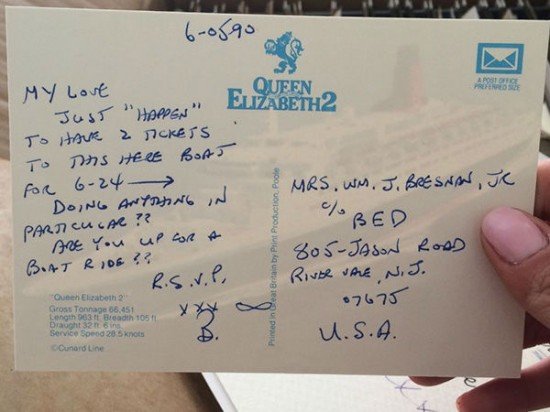 6-0590
QUEEN
ELIZABETH 2
A POST OFFICE
PREFERRED SIZE
MY LOVE
JUST "HAPPEN"
TO HAVE 2 TICKETS
TO THIS HERE BOAT
FOR 6-24 →
DOING ANYTHING IN
PARTICULAR ??
ARE YOU UP FOR A
BOAT RIDE ??
R.S.V.P.
XXX ∞
B.
"Queen Elizabeth 2"
Gross Tonnage 66,451
Length 963 ft. Breadth 105 ft
Draught 32 ft. 6 ins.
Service Speed 28.5 knots
©Cunard Line
Printed in Great Britain by Print Production, Poole
MRS. WM. J. BRESNAN, JR
c/o
BED
805-JASON ROAD
RIVER VALE, N.J.
07675
U.S.A.